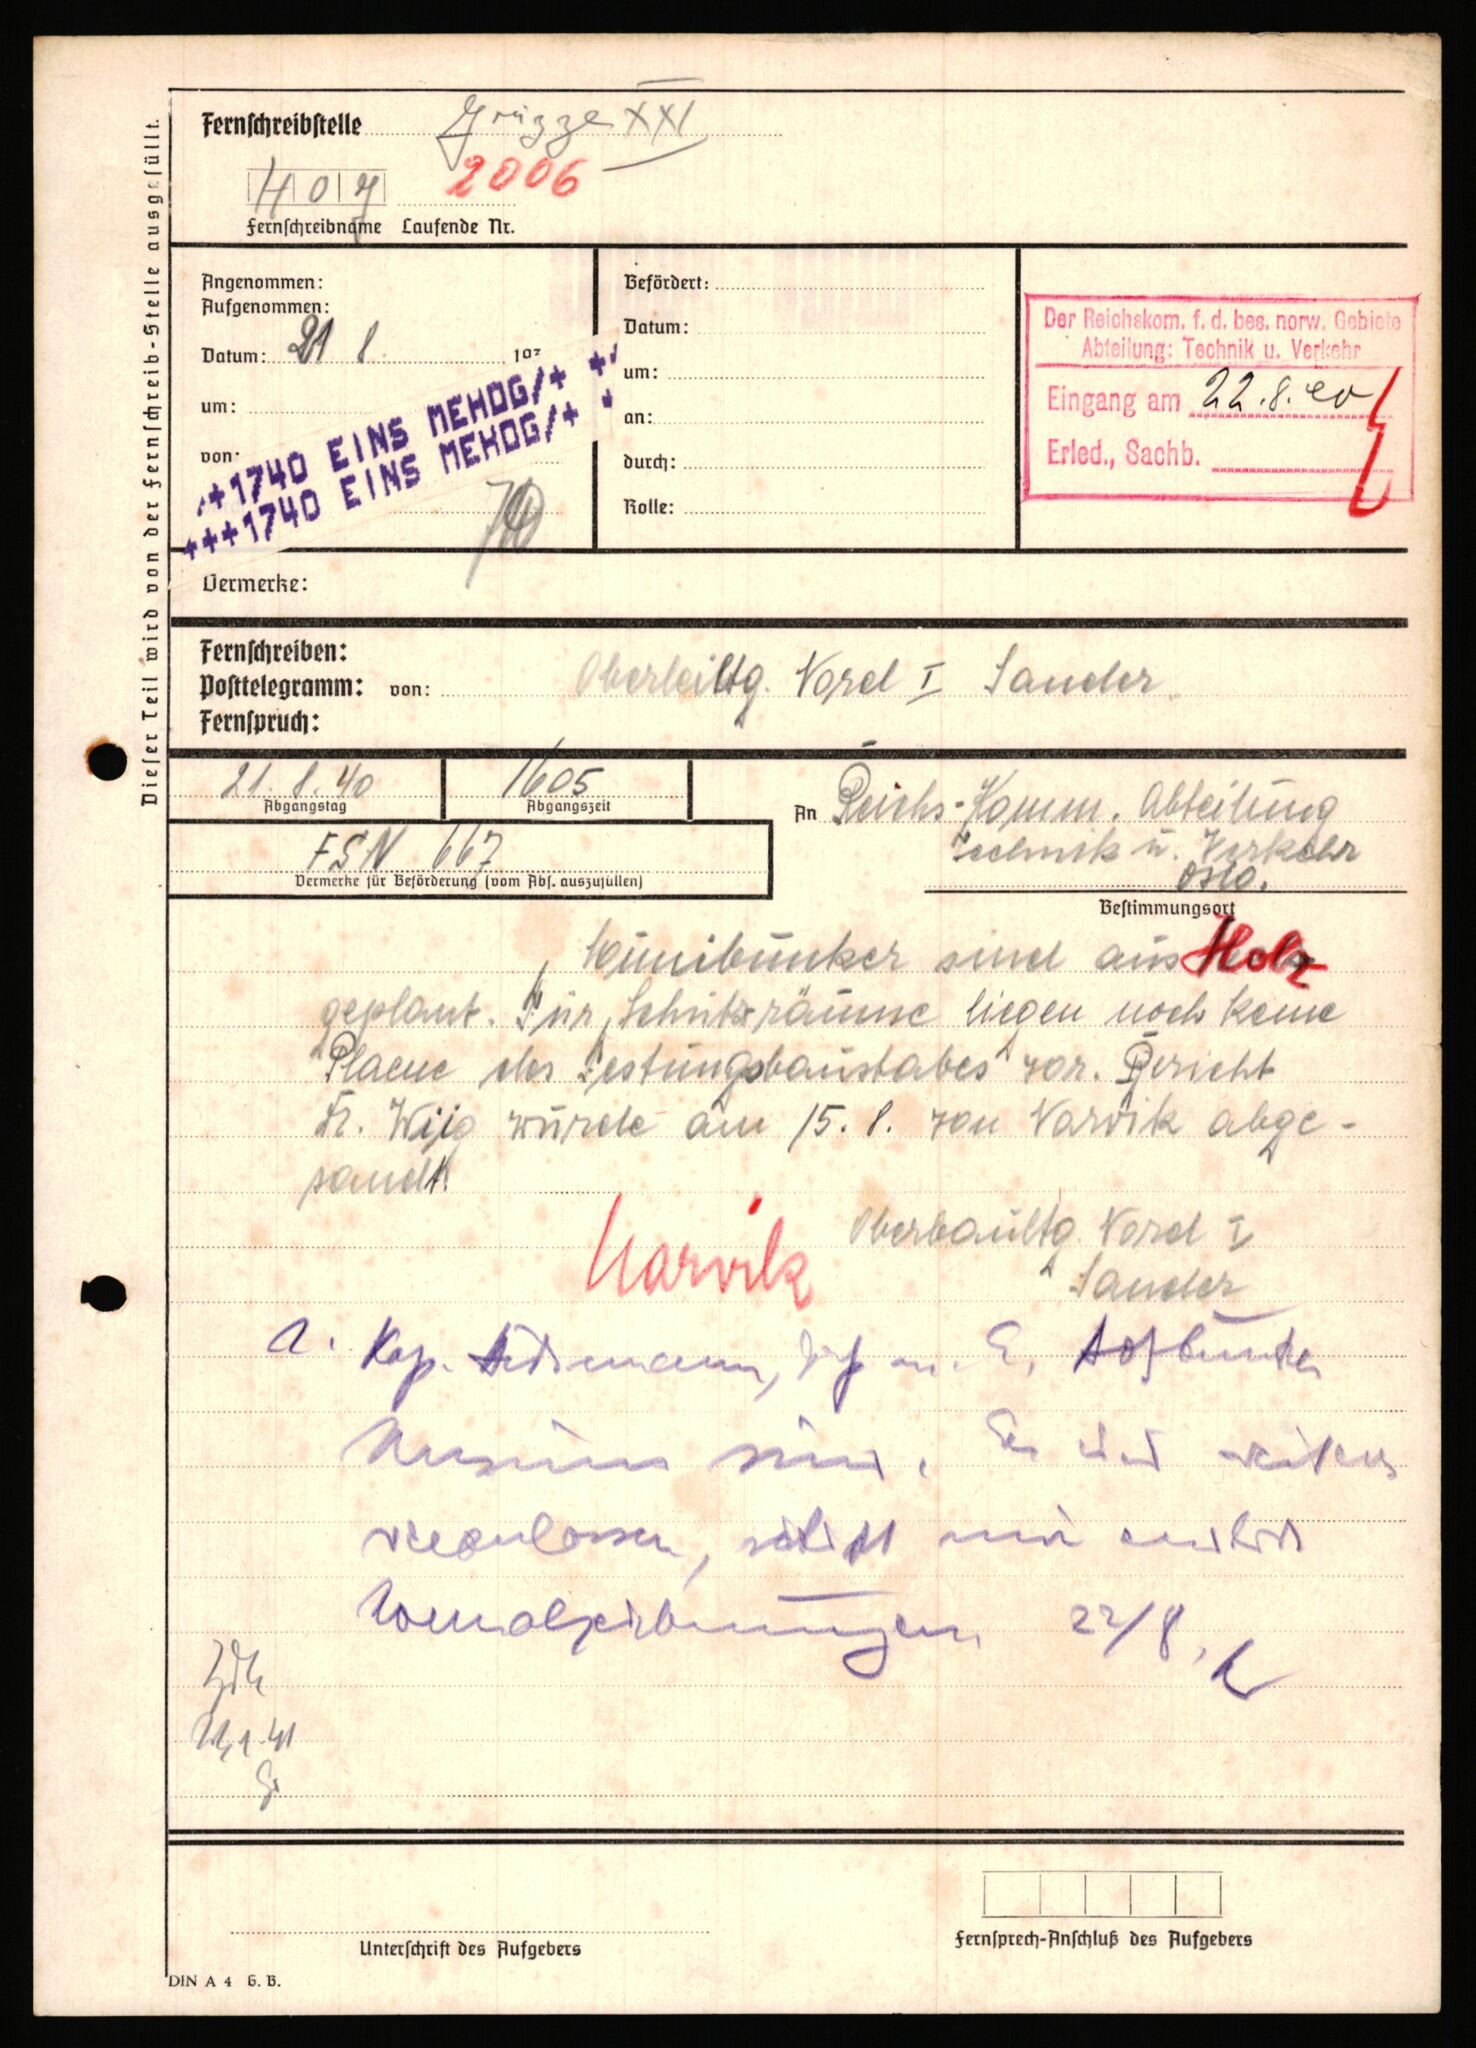 Dieser Teil wird von der Fernschreib-Stelle ausgefüllt.
Fernschreibstelle
XXI
407 2006
Fernschreibname Laufende Nr.
Angenommen:
Aufgenommen:
Datum: 21 8. 19
um:
von:
++1740 EINS MEHOG/+ +
+++1740 EINS MEHOG/+ +
Befördert:
Datum:
um:
an:
durch:
Rolle:
Der Reichskom. f. d. bes. norw. Gebiete
Abteilung: Technik u. Verkehr
Eingang am 22.8.40
Erled., Sachb.
Vermerke:
Fernschreiben:
Posttelegramm: von: Oberleiltg. Nord I Sander
Fernspruch:
21.8.40
Abgangstag
1605
Abgangszeit
FSN 667
Vermerke für Beförderung (vom Abs. auszufüllen)
An Reichs-Komm. Abteilung
Technik u. Verkehr
Oslo.
Bestimmungsort
Munibunker sind aus Holz
geplant. Für Schutzräume liegen noch keine
Plaene des Festungsbaustabes vor. Bericht
Dr. Wijg wurde am 15.8. von Narvik abge-
sandt.
Narvik
Oberbaultg. Nord I
Sander
1. Kap.
sind. Es wird weiteres
veranlassen,
22/8.
ZdA
41
Unterschrift des Aufgebers
Fernsprech-Anschluß des Aufgebers
DIN A 4 G. B.